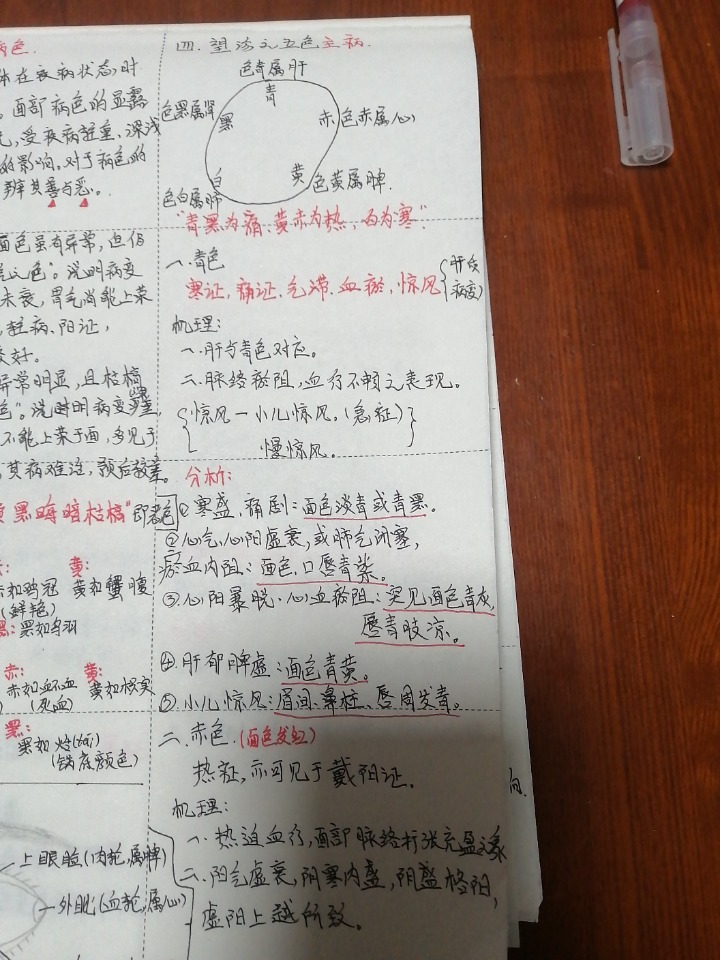 病色.
体在疾病状态时
面部病色的显露
受疾病轻重、深浅
的影响。对于病色的
辨其善与恶。
面色虽有异常，但仍
说明病变
未衰，胃气尚能上荣
轻病、阳证，
较好。
异常明显，且枯槁
色”。说明病变深重，
不能上荣于面，多见于
其病难治，预后较差。
黑晦暗枯槁”即恶色
黄：
赤如鸡冠 黄如蟹腹
(鲜艳)
黑：黑如乌羽
赤： 黄：
赤如衃血 黄如枳实
(死血)
黑：
黑如炲(tái)
(锅底颜色)
上眼睑(肉轮,属脾)
外眦(血轮,属心)
四.望诊之五色主病.
色青属肝
青
色黑属肾
黑
赤 色赤属心
白
黄 色黄属脾.
色白属肺
“青黑为痛、黄赤为热，白为寒”.
一.青色
寒证,痛证.气滞.血瘀,惊风{肝经病变}
机理：
一.肝与青色对应。
二.脉络瘀阻,血行不畅之表现。
惊风—小儿惊风.(急症)
慢惊风.
分析：
①寒盛,痛剧：面色淡青或青黑。
②心气,心阳虚衰,或肺气闭塞,
瘀血内阻：面色.口唇青紫。
③心阳暴脱.心血瘀阻：突见面色青灰,
唇青肢凉。
④.肝郁脾虚：面色青黄。
⑤.小儿惊风：眉间.鼻柱、唇周发青。
二.赤色.(面色发红)
热证,亦可见于戴阳证.
机理：
一.热迫血行,面部脉络扩张充盈之象
二.阳气虚衰,阴寒内盛,阴盛格阳,
虚阳上越所致。